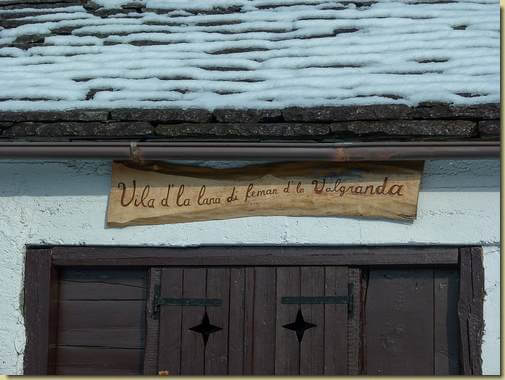 Vila d'la lana di feman d'la Valgranda